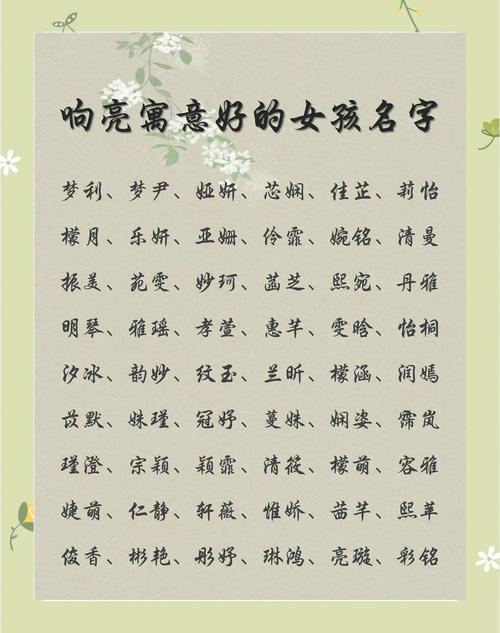 响亮寓意好的女孩名字
梦利、梦尹、娅妍、芯娴、佳芷、莉怡
檬月、乐妍、亚姗、伶霏、婉铭、清曼
振美、苑雯、妙珂、菡芝、熙宛、丹雅
明琴、雅瑶、孝萱、惠芊、雯晗、怡桐
汐冰、韵妙、纹玉、兰昕、檬涵、润嫣
苡默、姝瑾、冠妤、蔓姝、娴姿、霈岚
瑾澄、宗颖、颖霏、清筱、檬萌、容雅
婕萌、仁静、轩薇、惟娇、茜芊、熙苹
俊香、彬艳、彤妤、琳鸿、亮璇、彩铭